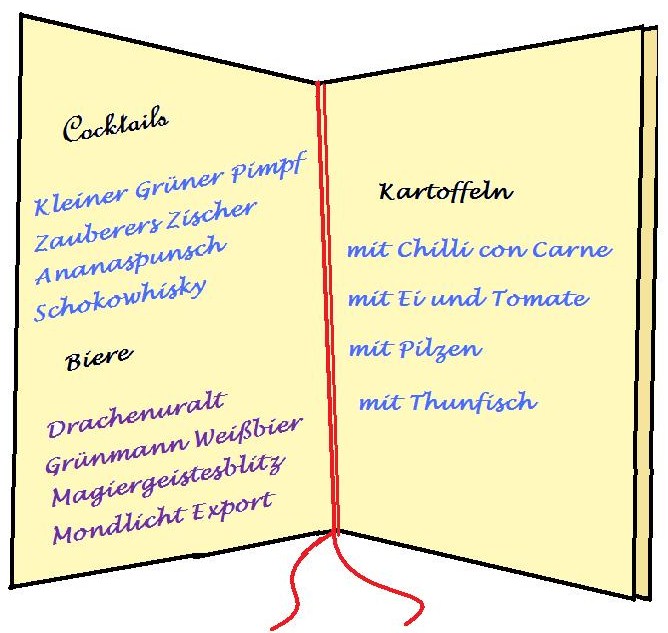 Cocktails
Kleiner Grüner Pimpf
Zauberers Zischer
Ananaspunsch
Schokowhisky
Biere
Drachenuralt
Grünmann Weißbier
Magiergeistesblitz
Mondlicht Export
Kartoffeln
mit Chilli con Carne
mit Ei und Tomate
mit Pilzen
mit Thunfisch